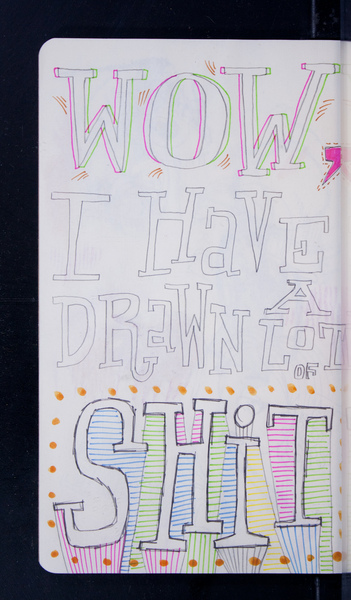 WOW,
I HaVE
DRaWN A LOT OF
SHiT